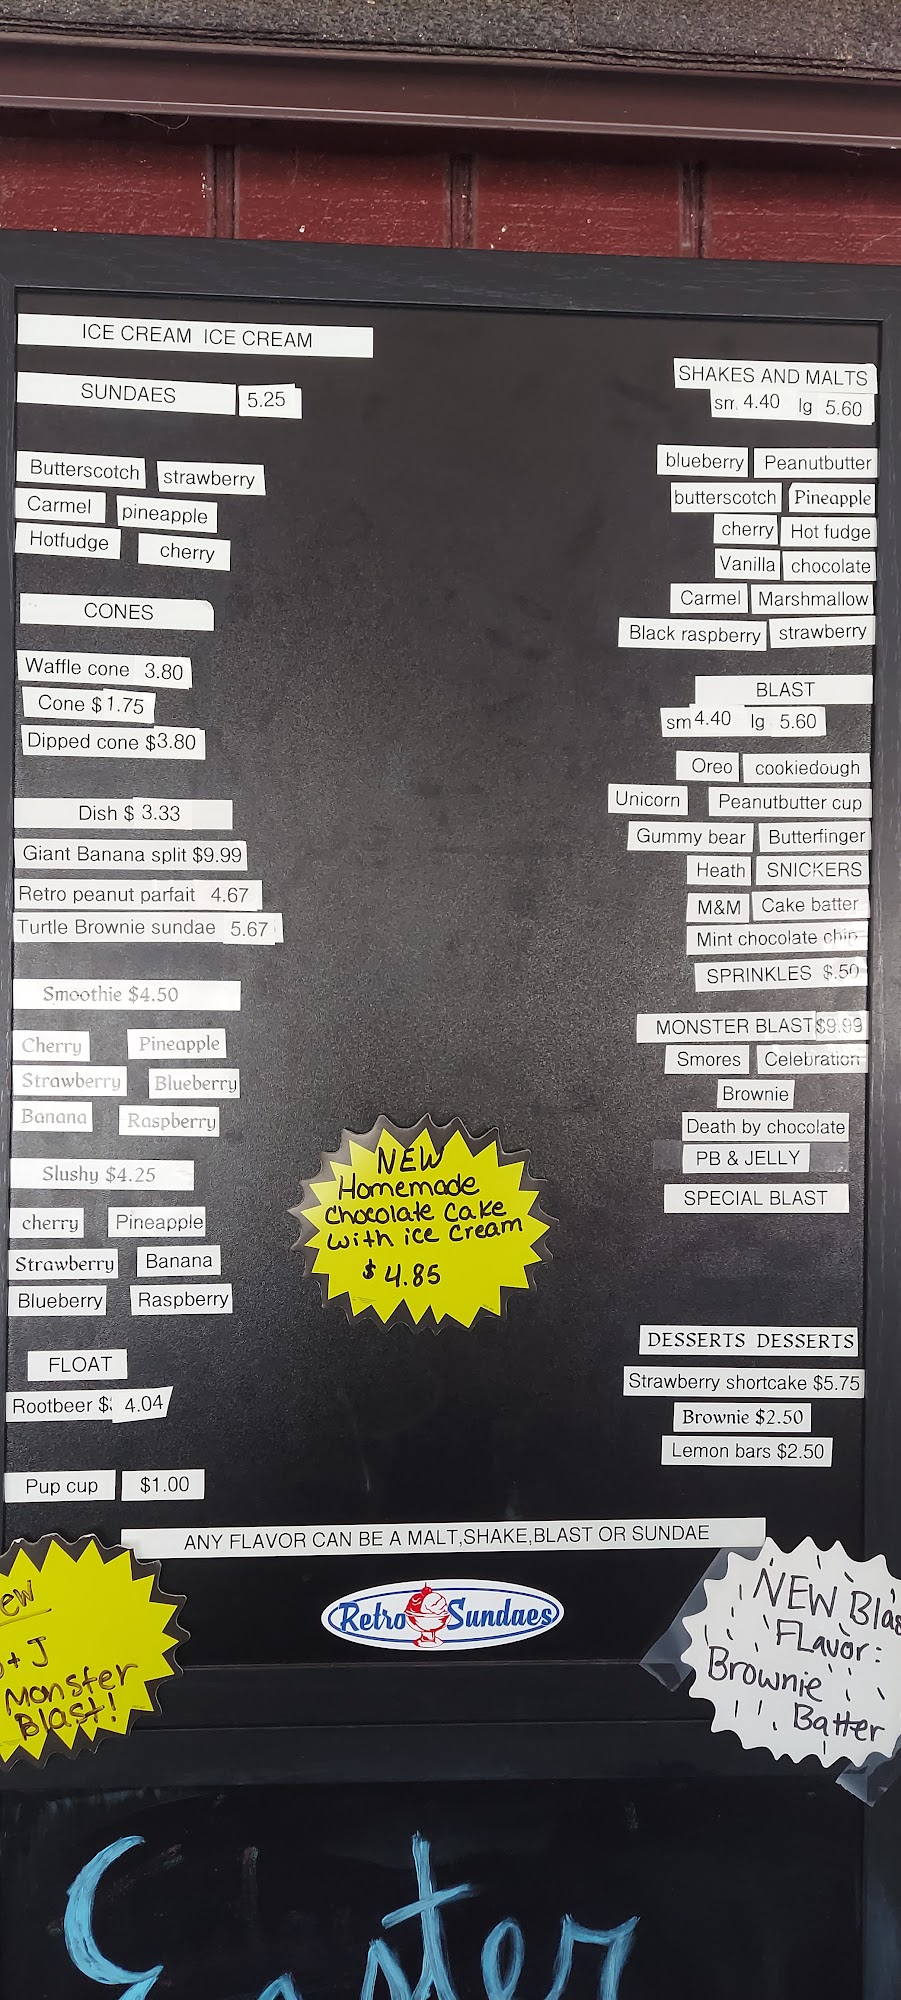 ICE CREAM ICE CREAM
SUNDAES 5.25
Butterscotch strawberry
Carmel pineapple
Hotfudge cherry
CONES
Waffle cone 3.80
Cone $1.75
Dipped cone $3.80
Dish $ 3.33
Giant Banana split $9.99
Retro peanut parfait 4.67
Turtle Brownie sundae 5.67
Smoothie $4.50
Cherry Pineapple
Strawberry Blueberry
Banana Raspberry
Slushy $4.25
cherry Pineapple
Strawberry Banana
Blueberry Raspberry
FLOAT
Rootbeer $ 4.04
Pup cup $1.00
NEW
Homemade
Chocolate Cake
with ice cream
$ 4.85
SHAKES AND MALTS
sm 4.40 lg 5.60
blueberry Peanutbutter
butterscotch Pineapple
cherry Hot fudge
Vanilla chocolate
Carmel Marshmallow
Black raspberry strawberry
BLAST
sm 4.40 lg 5.60
Oreo cookiedough
Unicorn Peanutbutter cup
Gummy bear Butterfinger
Heath SNICKERS
M&M Cake batter
Mint chocolate chip
SPRINKLES $.50
MONSTER BLAST $9.99
Smores Celebration
Brownie
Death by chocolate
PB & JELLY
SPECIAL BLAST
DESSERTS DESSERTS
Strawberry shortcake $5.75
Brownie $2.50
Lemon bars $2.50
ANY FLAVOR CAN BE A MALT,SHAKE,BLAST OR SUNDAE
Retro Sundaes
ew
+ J
Monster
Blast!
NEW Blas
Flavor:
Brownie
Batter
Easter